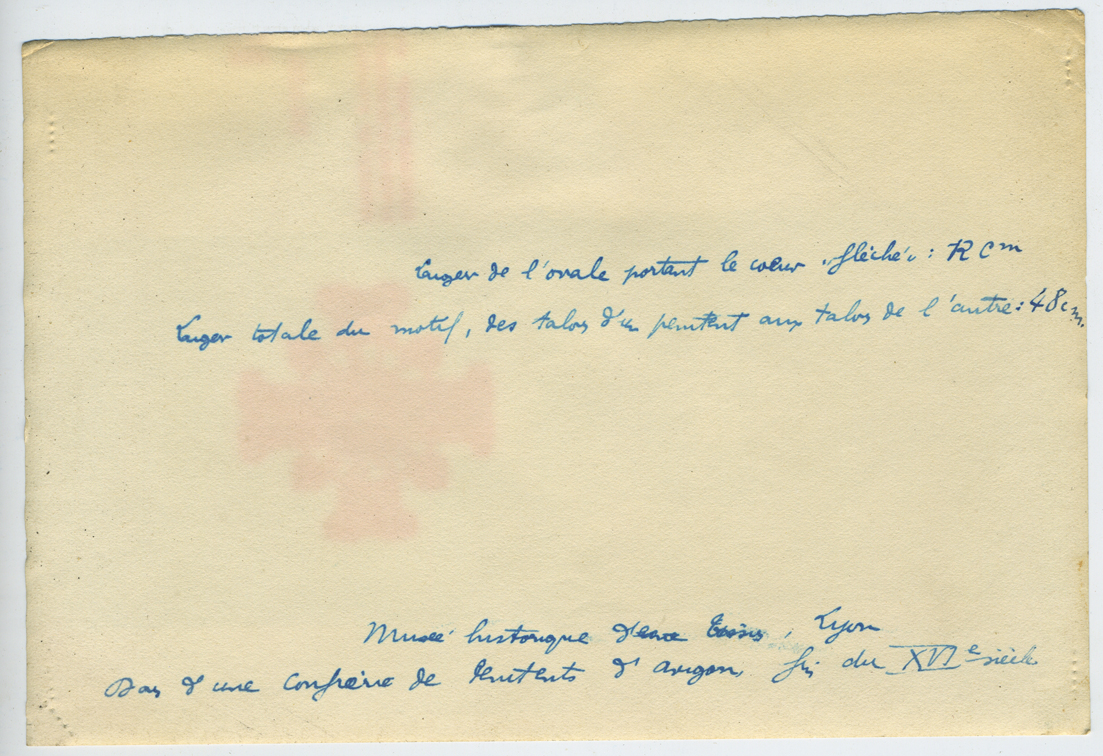 Larger de l'ovale portant le cœur "fléché" : 12 cm
Larger totale du motif, des talons d'un penitent aux talons de l'autre : 48 cm.
Musée historique des Tissus, Lyon
d'une confrérie de Penitents d'Avignon, fin du XVIe siècle